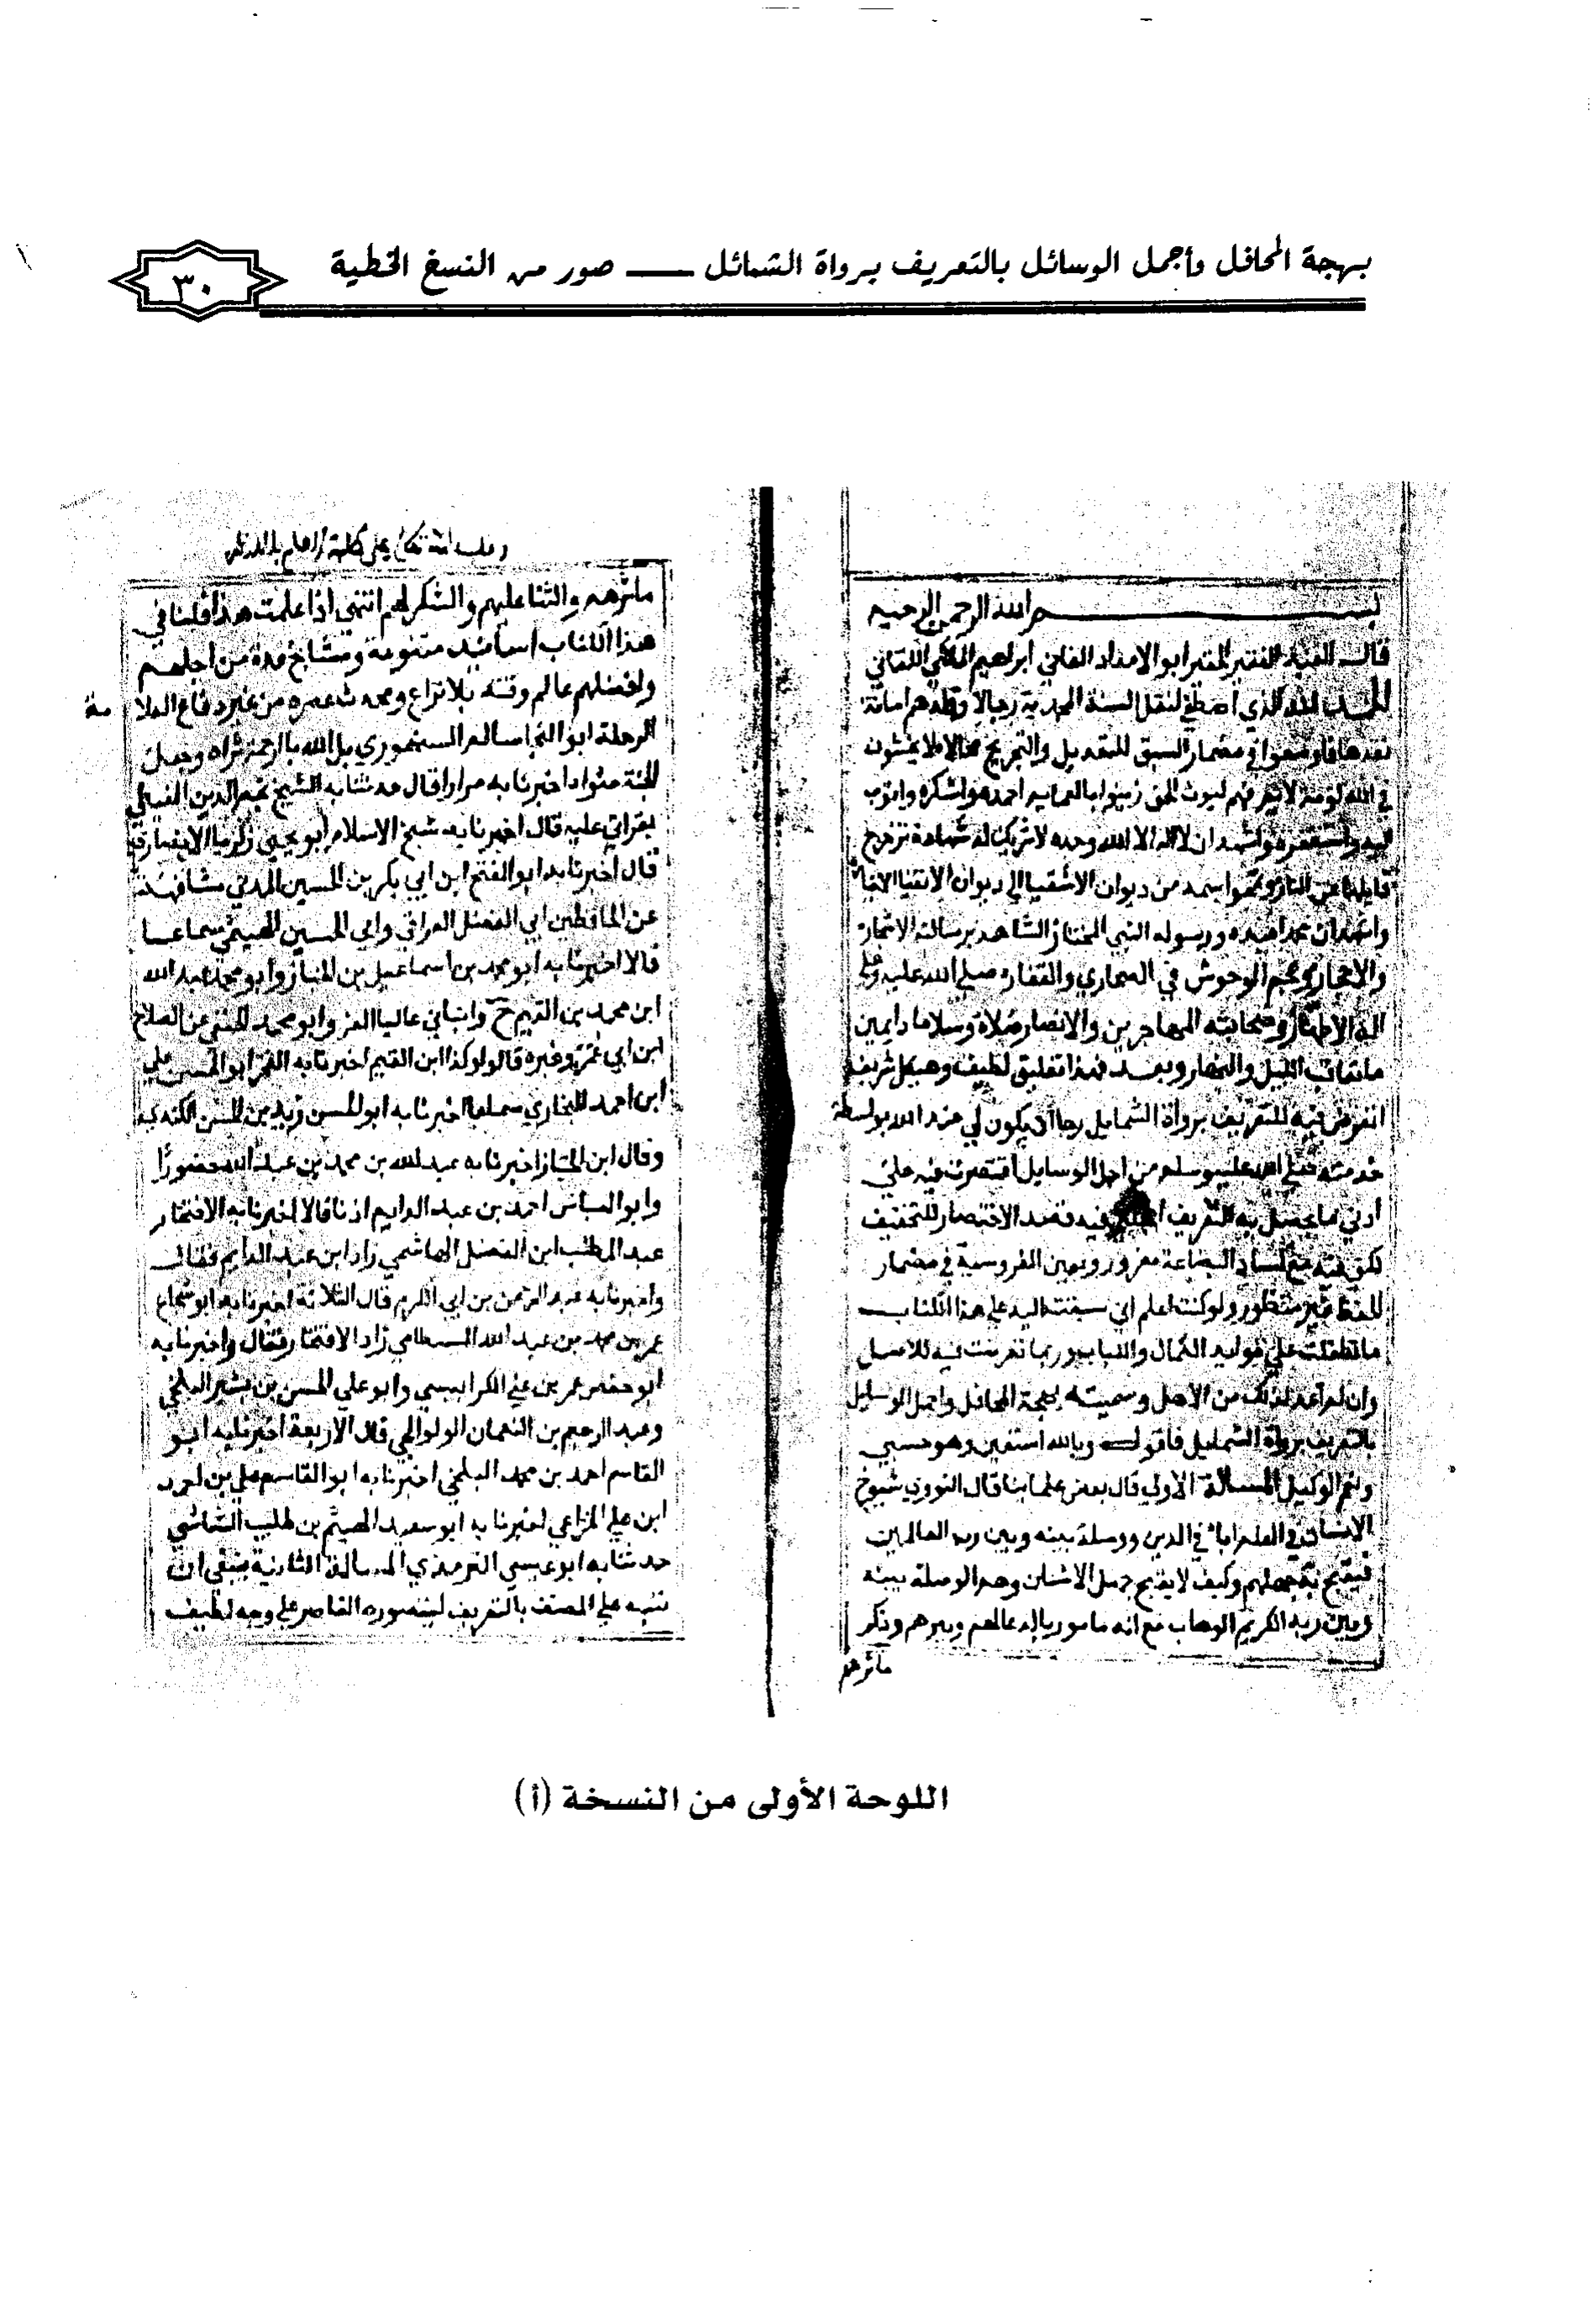 بهجة المحافل وأجمل الوسائل بالتعريف برواة الشمائل ــــ صور من النسخ الخطية
٣٠
بسم الله الرحمن الرحيم
قال العبد الفقير الحقير ابو الامداد الفاني ابراهيم المالكي اللقاني
الحمد لله الذي اصطفي لنقل السنة المحمدية رجالا وقلدهم امانة
نقدها فاوضعوا في مضمار السبق للتعديل والتجريح مجالا ولا يخشون
في الله لومة لايم فهم ليوث احمده واشكره واتوب
اليه واستغفره واشهد ان لا اله الا الله وحده لا شريك له شهادة تزحزح
قايلها عن النار وتمحوا اسمه من ديوان الاشقيا الي ديوان الاتقيا
واشهد ان محمدا عبده ورسوله النبي المختار الشاهد برسالته الاشجار
والاحجار وعجم الوحوش في الصحاري والقفار صلي الله عليه وعلي
اله الاطهار وصحابته المهاجرين والانصار صلاة وسلاما دايمين
ما تعاقب الليل والنهار وبعد فهذا تعليق لطيف وهيكل شريف
اتعرض فيه للتعريف برواة الشمايل رجا ان يكون لي عند الله بواسطة
خدمته صلي الله عليه وسلم من اجل الوسايل اقتصرت فيه علي
ادني ما يحصل به التعريف فيه قصد الاختصار للتخفيف
لكن مع كساد البضاعة معذور وبعين الفروسية في مضمار
الحفظ غير منظور ولو كنت اعلم اني سبقت اليه علي هذا الكتاب
ما تطفلت علي موايد الكمال واللباب وربما تعرضت فيه للاصل
وان لم اعد لذلك من الاصل وسميته بهجة المحافل واجمل الوسايل
بالتعريف برواة الشمايل فاقول وبالله استعين وهو حسبي
ونعم الوكيل المسالة الاولي قال بعض علماينا قال النووي شيوخ
الانسان في العلم اباء في الدين ووصلة بينه وبين رب العالمين
فيقبح به جهلهم وكيف لا يقبح جهل الانسان وهم الوصلة بينه
وبين ربه الكريم الوهاب مع انه مامور بالدعا لهم وبرهم وذكر
ماثرهم
ماثرهم والثنا عليهم والشكر لهم انتهي اذا علمت هذا فلنا في
هذا الكتاب اسانيد متنوعة ومشايخ عدة من اجلهم
وافضلهم عالم وقته بلا نزاع ومحدث عصره من غير دفاع العلا
مة
الرحلة ابو النجا سالم السنهوري بل الله بالرحمة ثراه وجعل
الجنة مثواه اخبرنا به مرارا قال حدثنا به الشيخ نجم الدين الغيطي
بقراتي عليه قال اخبرنا به شيخ الاسلام ابو يحيي زكريا الانصاري
قال اخبرنا به ابو الفتح ابن ابي بكر بن الحسين المدني مشافهة
عن الحافظين ابي الفضل العراقي وابي الحسين الهيثمي سماعا
قالا اخبرنا به ابو محمد بن اسماعيل بن الخباز وابو محمد عبد الله
ابن محمد بن القيم ح وانباني عاليا العز وابو محمد الحنفي عن الصلاح
ابن ابي عمر وغيره قالوا وكذا ابن القيم اخبرنا به الفخر ابو الحسن علي
ابن احمد البخاري سماعا اخبرنا به ابو اليمن زيد بن الحسن الكندي
وقال ابن الخباز اخبرنا به عبد الله بن محمد بن عبد الله حضورا
وابو العباس احمد بن عبد الدايم اذنا قالا اخبرنا به الافتخار
عبد المطلب ابن الفضل الهاشمي زاد ابن عبد الدايم فقال
واخبرنا به عبد الرحمن بن ابي الكرم قال الثلاثة اخبرنا به ابو شجاع
عمر بن محمد بن عبد الله البسطامي زاد الافتخار فقال واخبرنا به
ابو حفص عمر بن علي الكرابيسي وابو علي الحسن بن بشير البلخي
وعبد الرحيم بن النعمان الولوالجي قال الاربعة اخبرنا به ابو
القاسم احمد بن محمد البلخي اخبرنا به ابو القاسم علي بن احمد
ابن علي الخزاعي اخبرنا به ابو سعيد الهيثم بن كليب الشاشي
حدثنا به ابو عيسي الترمذي المسالة الثانية ينبغي ان
ننبه علي المصنف بالتعريف لينتصوره القاصر علي وجه لطيف
اللوحة الأولى من النسخة (أ)